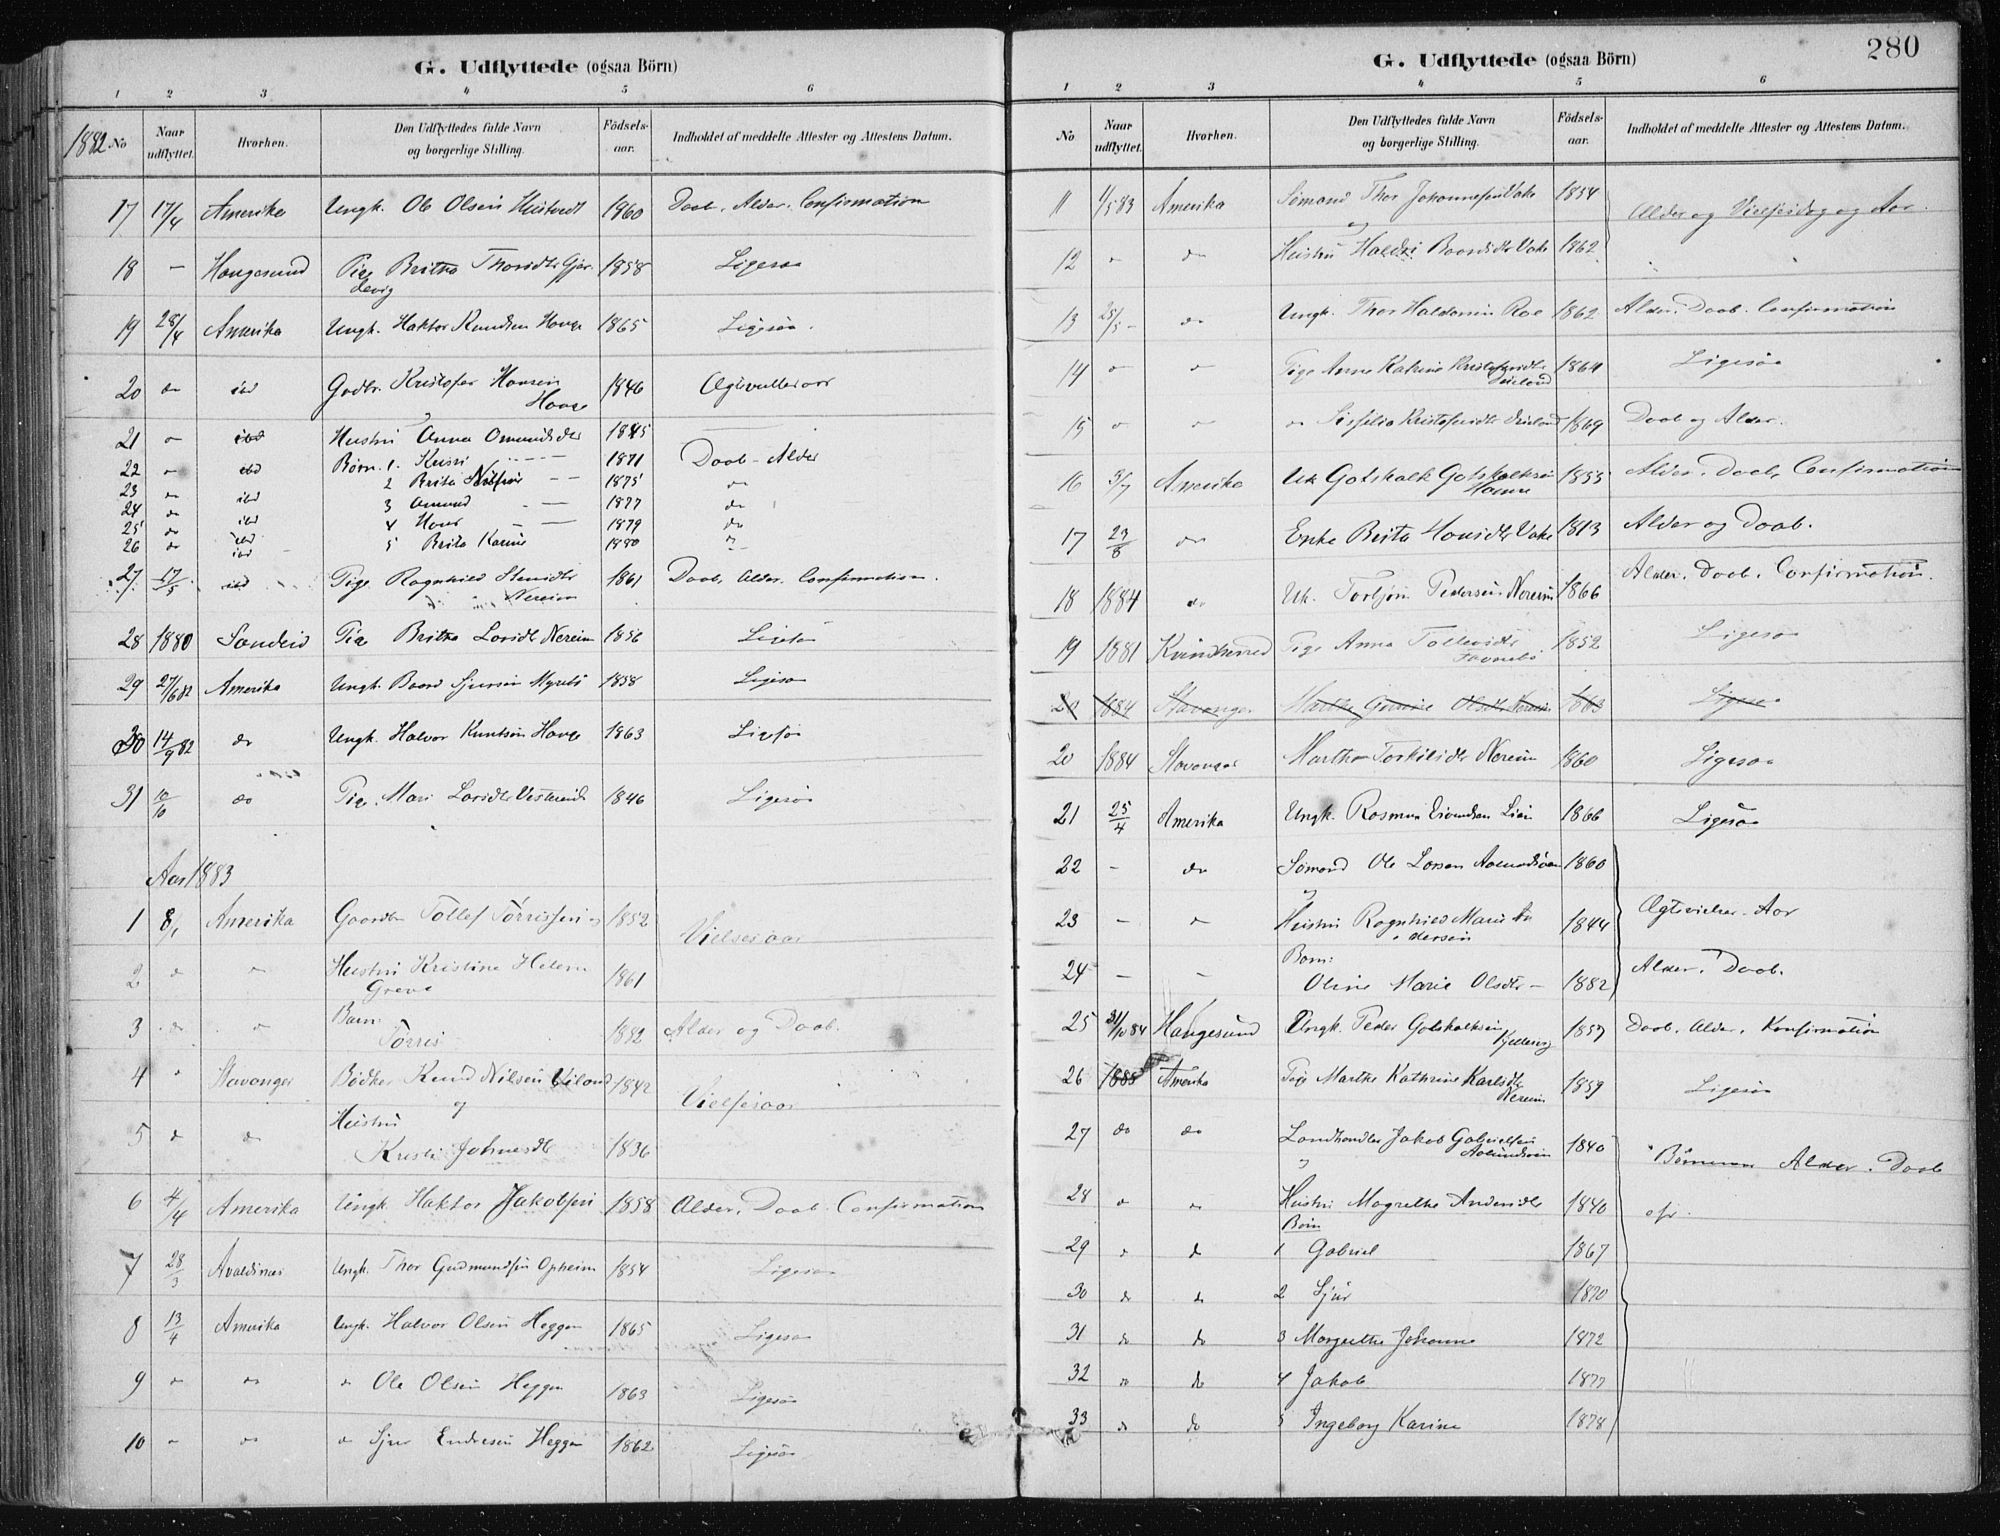 G. Udflyttede (ogsaa Börn)
1 2 3 4 5 6
1882 No Naar udflyttet. Hvorhen. Den Udflyttedes fulde Navn og borgerlige Stilling. Födsels-aar. Indholdet af meddelte Attester og Attestens Datum.
17 17/4 Amerika Ungk. Ole Olsen 1960 Daab. Alder. Confirmation
18 — Haugesund Pige Britha Thorsdtr Gjer- 1858 Ligesaa
devig
19 28/4 Amerika Ungk. Haktor Knudsen Hauge 1865 Ligesaa
20 do ibd Gadbr. Kristofer Hansen 1846
Hauge
21 " ibd Hustru Anna Omundsdtr 1845
22 " ibd Børn. 1. Kristi 1871 Daab - Alder
23 do ibd 2 Brita 1875 do
24 do ibd 3 Omund 1877 do
25 do ibd 4 Hans 1879 do
26 do ibd 5 Brita Karine 1880 "
27. 17/5 ibd Pige Ragnhild Stensdtr 1861 Daab. Alder. Confirmation.
Nereim
28 1880 Sandeid Pige Britha Larsdtr Nereim 1856 Ligesaa
29 27/6 82 Amerika Ungk. Baard Sjursen 1858 Ligesaa
30 14/9 82 do Ungk. Halvor Knutsen Hauge 1863 Ligesaa
31 10/10 do Pige. Mari Larsdtr 1846 Ligesaa
Aar 1883
1 8/1 Amerika Gaardbr. Tollef Tørrissen og 1852 Vielsesaar
2 " " Hustru Kristine Helene 1861
Greve
3 do " Barn:
Tørris 1882 Alder og Daab.
4 " Stavanger Bødker Knud Nilsen 1842 Vielsesaar
og
5 " " Hustru
Kristi Johnsdtr 1836
6 4/4 Amerika Ungk. Haktor Jakobsen 1858 Alder, Daab. Confirmation
7 28/3 Avaldsnes Ungk. Thor Gudmundsen Opheim 1854 Ligesaa
8 13/4 Amerika Ungk. Halvor Olsen Heggen 1865 Ligesaa
9 " " " Ole Olsen Heggen 1863 Ligesaa
10 " " " Sjur Endresen Heggen 1862 Ligesaa
280
G. Udflyttede (ogsaa Börn)
1 2 3 4 5 6
No Naar udflyttet. Hvorhen. Den Udflyttedes fulde Navn og borgerlige Stilling. Födsels-aar. Indholdet af meddelte Attester og Attestens Datum.
11 1/5 83 Amerika Sømand Thor Johannessen Vake 1854 Alder og Vielsesdag og Aar.
og
12 " do Hustru Baardsdtr Vake 1862
13 25/5 — do Ungk. Thor Haldorsen Roe 1862 Alder. Daab. Confirmation
14 " " Pige Anne Katrine Kristofersdtr 1864 Ligesaa
15 " " " Kristofersdtr 1869 Daab og Alder.
16 3/7 Amerika Uk Gotskalk Gotskalksen 1855 Alder. Daab. Confirmation
17 23/8 do Enke Brita Hansdtr Vake 1813 Alder og Daab.
18 1884 do Uk. Torbjørn Pedersen Nereim 1866 Alder. Daab. Confirmation.
19 1881 Kvindherred Pige Anna Tollevsdtr 1852 Ligesaa
20 1884 Stavanger Marthe Olsdtr Nereim 1863 Ligesaa
20 1884 Stavanger Martha Torkilsdtr Nereim 1860 Ligesaa
21 25/4 Amerika Ungk. Rasmus Eivindsen Lien 1866 Ligesaa
22 — do Sømand Ole Larsen 1860
og
23 — " Hustru Ragnhild Marie An 1844 Ægtevielses-Aar
dersen
24 — " Barn:
Oline Marie Olsdtr — 1882 Alder. Daab.
25 31/10 84 Haugesund Ungk. Peder Gotskalksen 1857 Daab. Alder. Konfirmation
26 1885 Amerika Pige Marthe Kathrine Karlsdtr 1859 Ligesaa
Nereim
27 do do Landhandler Jakob Gabrielsen 1840 Børnenes Alder. Daab
og
28 " " Hustru Magrethe Andersdtr 1840
Børn
29 " do 1 Gabriel 1867
30 do do 2 Sjur 1870
31 do do 3 Margrethe Johanne 1872
32 do do 4 Jakob 1877
33 do do 5 Ingeborg Karine 1878